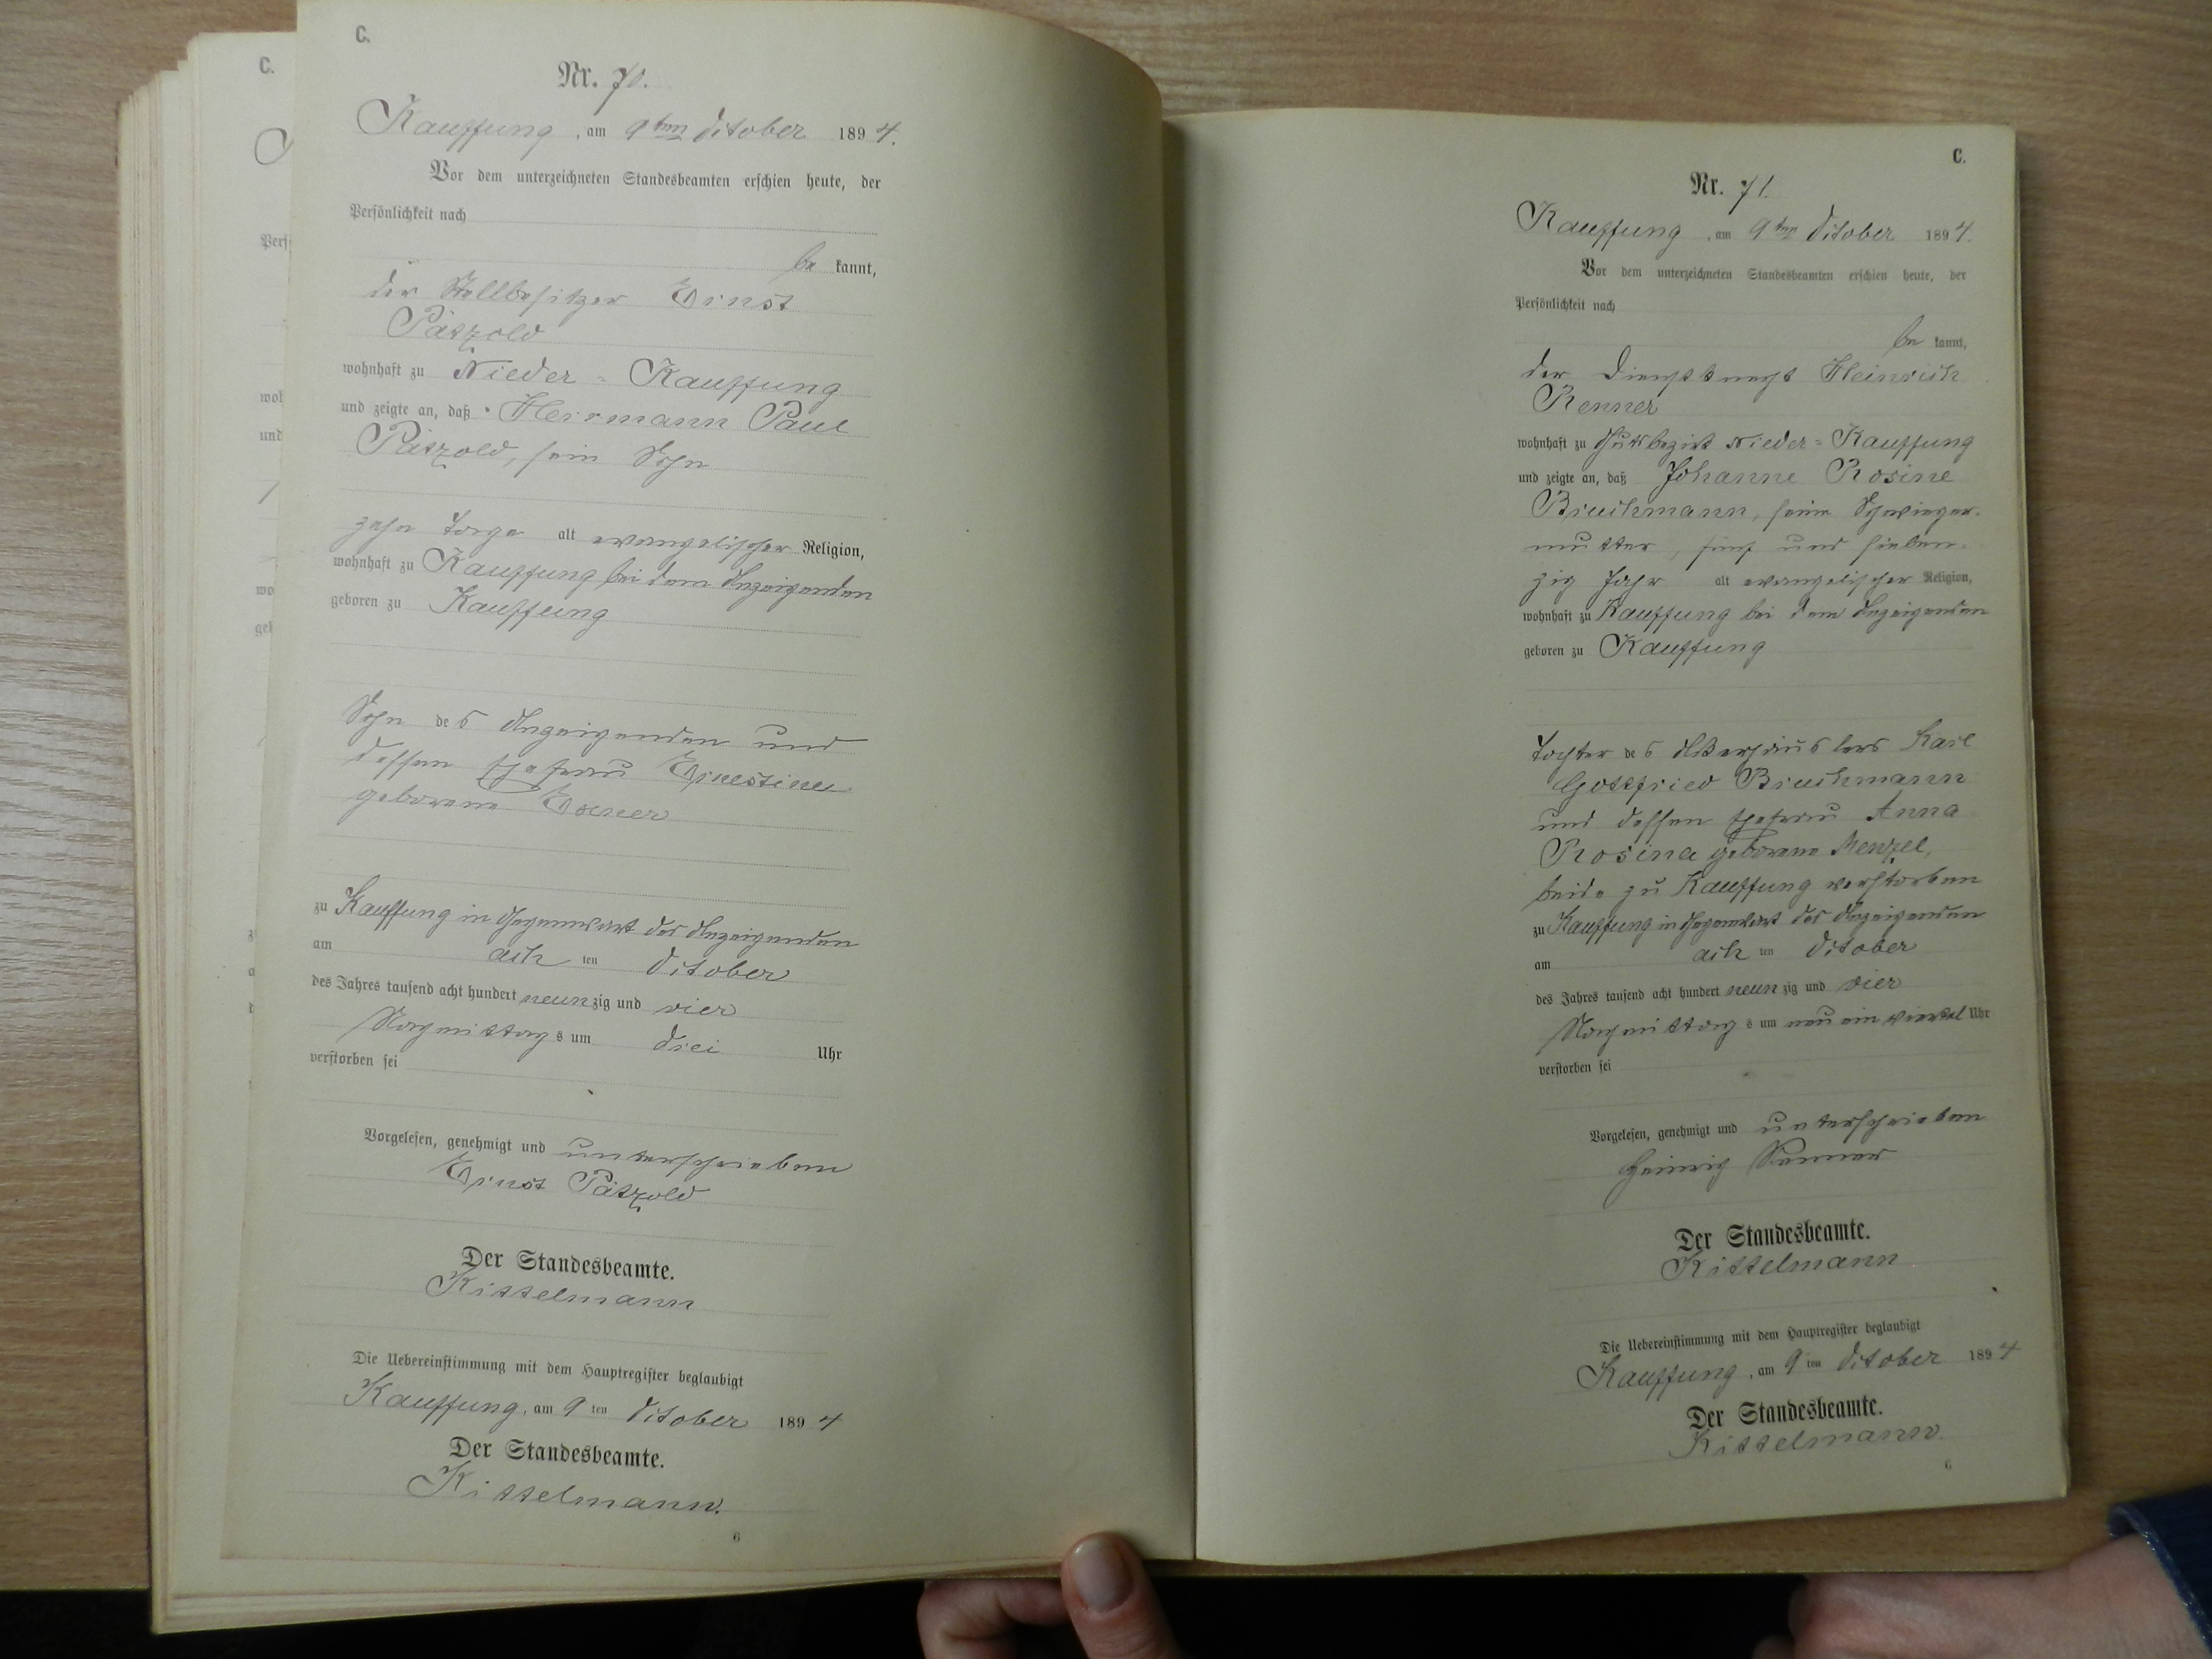 C.
C.
Nr. 70.
Kauffung, am 9ten October 1894.
Vor dem unterzeichneten Standesbeamten erschien heute, der
Persönlichkeit nach
be kannt,
der Stellbesitzer Ernst
Pätzold
wohnhaft zu Nieder-Kauffung
und zeigte an, daß Herrmann Paul
Pätzold, sein Sohn
zehn Tage alt evangelischer Religion,
wohnhaft zu Kauffung bei dem Anzeigenden
geboren zu Kauffung
Sohn des Anzeigenden und
dessen Ehefrau Ernestine
geborene Exner
zu Kauffung in Gegenwart des Anzeigenden
am achten October
des Jahres tausend acht hundert neunzig und vier
Nachmittags um drei Uhr
verstorben sei
Vorgelesen, genehmigt und unterschrieben
Ernst Pätzold
Der Standesbeamte.
Kittelmann
Die Uebereinstimmung mit dem Hauptregister beglaubigt
Kauffung, am 9ten October 1894
Der Standesbeamte.
Kittelmann.
6
C.
Nr. 71.
Kauffung, am 9ten October 1894.
Vor dem unterzeichneten Standesbeamten erschien heute, der
Persönlichkeit nach
be kannt,
der Dienstknecht Heinrich
Renner
wohnhaft zu Gutsbezirk Nieder-Kauffung
und zeigte an, daß Johanne Rosine
Bruchmann, seine Schwieger-
mutter, fünf und sieben-
zig Jahr alt evangelischer Religion,
wohnhaft zu Kauffung bei dem Anzeigenden
geboren zu Kauffung
Tochter des Karl
Gottfried Bruchmann
und dessen Ehefrau Anna
Rosina geborene Menzel,
beide zu Kauffung verstorben
zu Kauffung in Gegenwart des Anzeigenden
am achten October
des Jahres tausend acht hundert neunzig und vier
Nachmittags um ein viertel Uhr
verstorben sei
Vorgelesen, genehmigt und unterschrieben
Heinrich Renner
Der Standesbeamte.
Kittelmann
Die Uebereinstimmung mit dem Hauptregister beglaubigt
Kauffung, am 9ten October 1894
Der Standesbeamte.
Kittelmann.
6